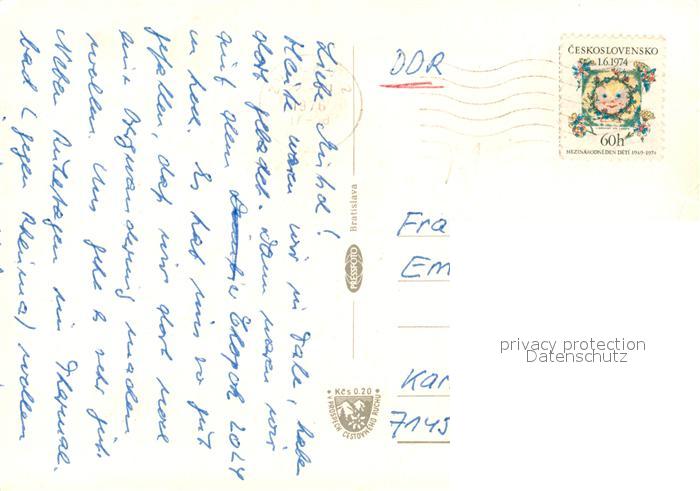 Liebe Mutsch!
Heute waren wir in Dale, haben
dort gebadet. Dann waren wir
auf dem Chopok 2024
m hoch. Es hat uns so gut
gefallen, daß wir dort noch
eine Bergwanderung machen
wollen. Uns geht es sehr gut.
Neben Ruhetagen im Thermal-
bad (gegen Rheuma) wollen
DDR
ČESKOSLOVENSKO
1.6.1974
60h
MEZINÁRODNÍ DEN DĚTÍ 1949-1974
Bratislava
PRESSFOTO
Kčs 0.20
V PROSPĚCH CESTOVNÉHO RUCHU
Fra
Em
Kar
7145
privacy protection
Datenschutz